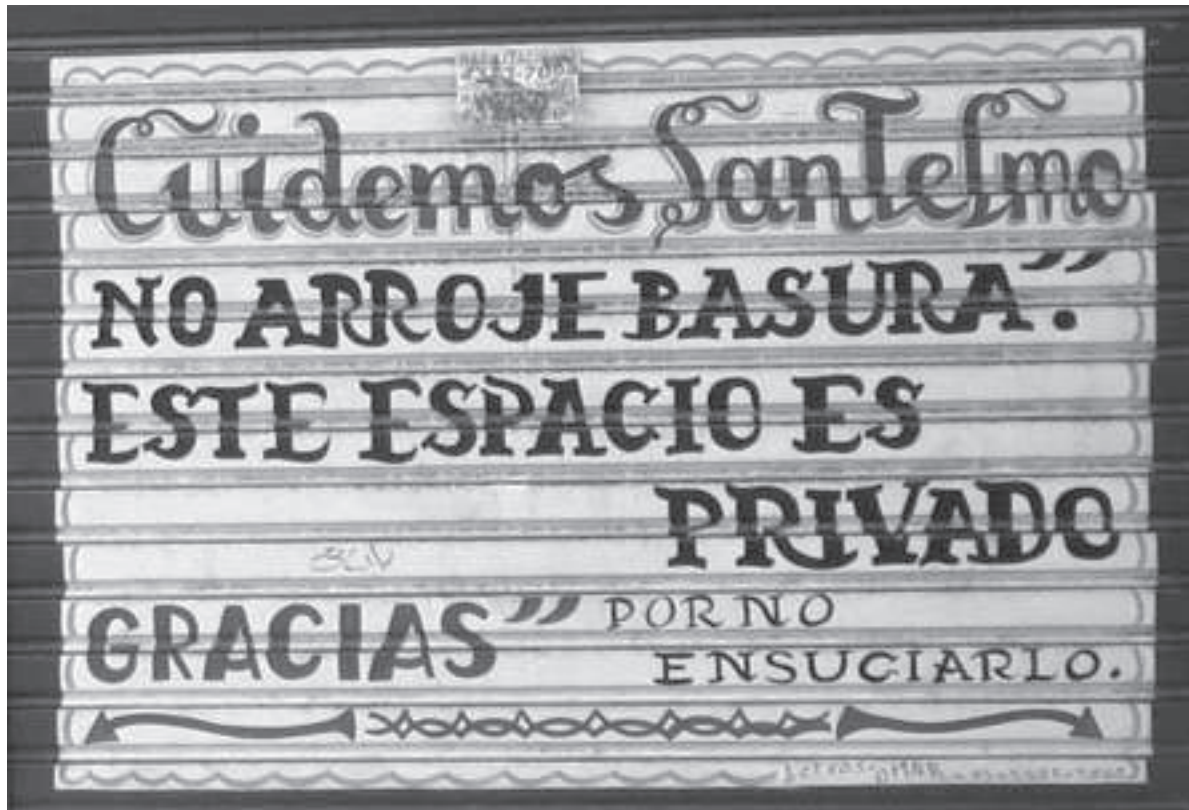 Cuidemos San Telmo
NO ARROJE BASURA”.
ESTE ESPACIO ES
PRIVADO
GRACIAS” POR NO
ENSUCIARLO.